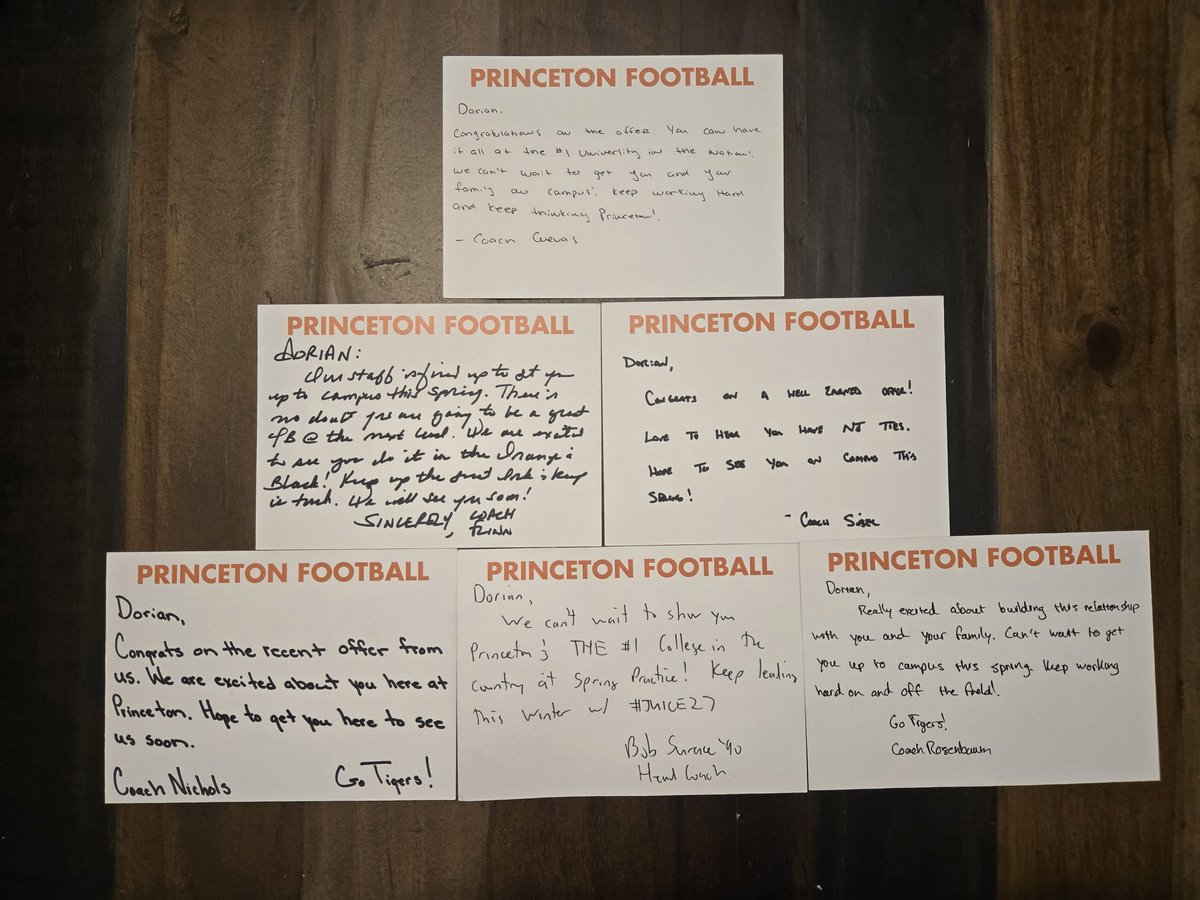 PRINCETON FOOTBALL
Dorian,
Congratulations on the offer. You can have
it all at the #1 University in the Nation!
We can't wait to get you and your
family on campus! Keep working Hard
and keep thinking Princeton!
- Coach Cuevas
PRINCETON FOOTBALL
DORIAN:
Our staff is fired up to get you
up to campus this Spring. There is
no doubt you are going to be a great
QB @ the next level. We are excited
to see you do it in the Orange &
Black! Keep up the great work & keep
in touch. We will see you soon!
SINCERELY, COACH
FLINN
PRINCETON FOOTBALL
DORIAN,
CONGRATS ON A WELL EARNED OFFER!
LOVE TO HEAR YOU HAVE NJ TIES.
HOPE TO SEE YOU ON CAMPUS THIS
SPRING!
- COACH
PRINCETON FOOTBALL
Dorian,
Congrats on the recent offer from
us. We are excited about you here at
Princeton. Hope to get you here to see
us soon.
Coach Nichols Go Tigers!
PRINCETON FOOTBALL
Dorian,
We can't wait to show you
Princeton's THE #1 College in the
Country at Spring Practice! Keep leading
this Winter w/ #JUICE27
Bob Surace '90
Head Coach
PRINCETON FOOTBALL
Dorian,
Really excited about building this relationship
with you and your family. Can't wait to get
you up to campus this spring. Keep working
hard on and off the field!
Go Tigers!
Coach Rosenbaum